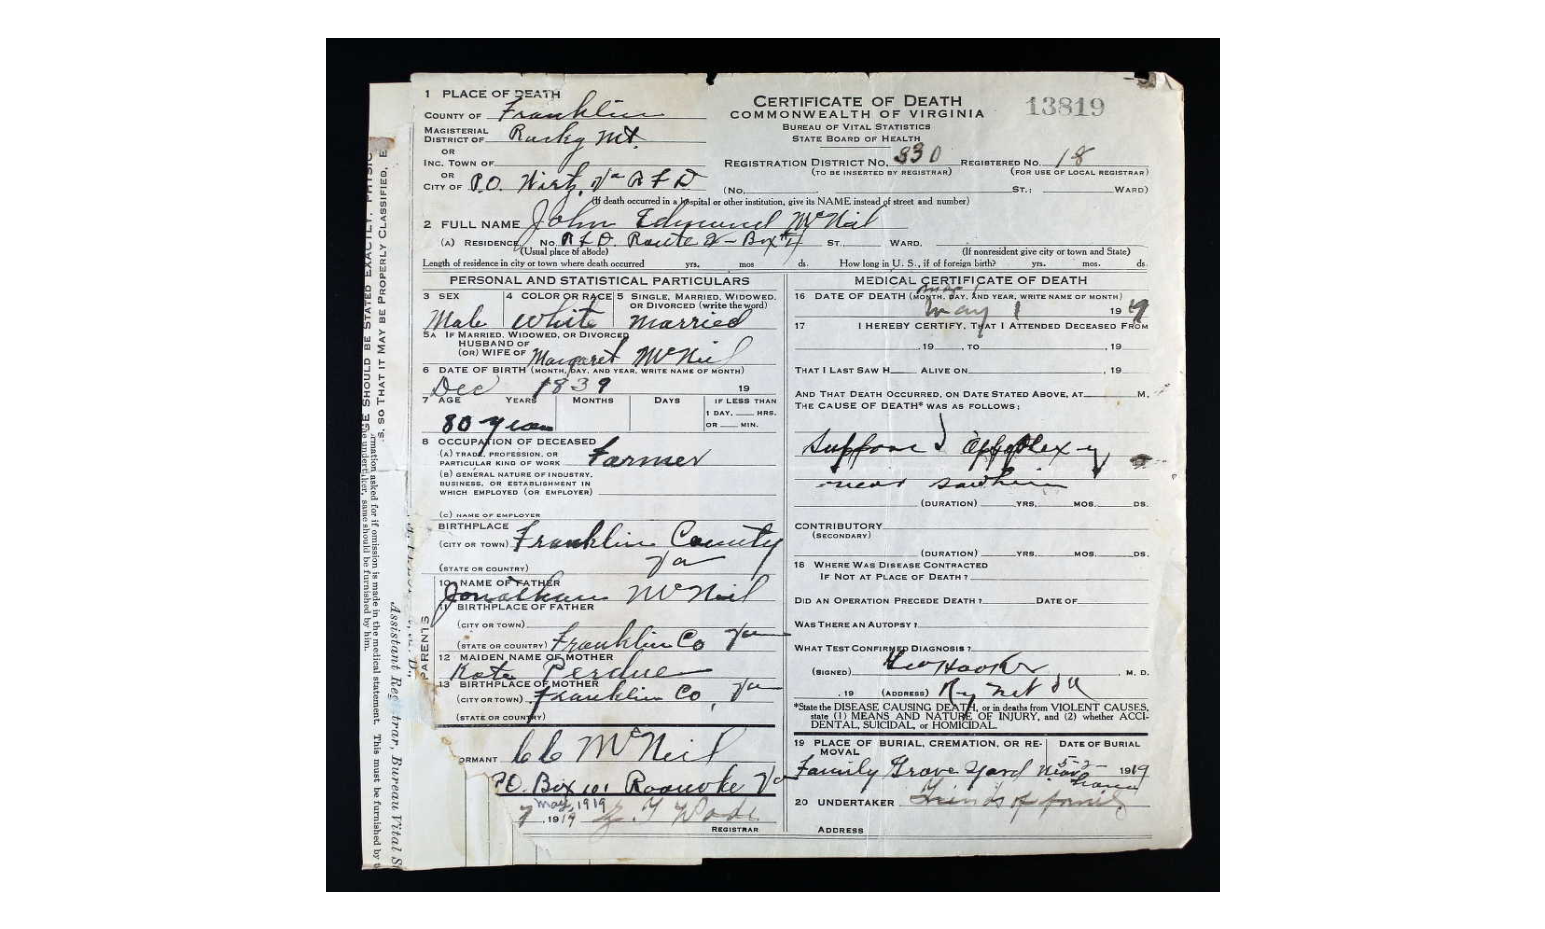 1 PLACE OF DEATH
COUNTY OF Franklin
MAGISTERIAL DISTRICT OF Rocky Mt.
OR
INC. TOWN OF
OR
CITY OF P.O. Wirtz, Va R F D
CERTIFICATE OF DEATH
COMMONWEALTH OF VIRGINIA
BUREAU OF VITAL STATISTICS
STATE BOARD OF HEALTH
13819
REGISTRATION DISTRICT No. 330 REGISTERED No. 18
(TO BE INSERTED BY REGISTRAR) (FOR USE OF LOCAL REGISTRAR)
(No. ST.; WARD)
(If death occurred in a hospital or other institution, give its NAME instead of street and number)
2 FULL NAME John Edmund McNeil
(A) RESIDENCE No. R F D. Route 2 - Box #4 ST. WARD.
(Usual place of abode) (If nonresident give city or town and State)
Length of residence in city or town where death occurred yrs. mos ds. How long in U. S., if of foreign birth? yrs. mos. ds.
PERSONAL AND STATISTICAL PARTICULARS
3 SEX 4 COLOR OR RACE 5 SINGLE, MARRIED, WIDOWED, OR DIVORCED (write the word)
Male White Married
5A IF MARRIED, WIDOWED, OR DIVORCED
HUSBAND OF
(OR) WIFE OF Margaret McNeil
6 DATE OF BIRTH (MONTH, DAY, AND YEAR, WRITE NAME OF MONTH)
Dec 1839 19
7 AGE YEARS MONTHS DAYS IF LESS THAN
1 DAY, HRS.
OR MIN.
80 years
8 OCCUPATION OF DECEASED
(A) TRADE, PROFESSION, OR
PARTICULAR KIND OF WORK Farmer
(B) GENERAL NATURE OF INDUSTRY,
BUSINESS, OR ESTABLISHMENT IN
WHICH EMPLOYED (OR EMPLOYER)
(C) NAME OF EMPLOYER
BIRTHPLACE
(CITY OR TOWN) Franklin County
(STATE OR COUNTRY) Va
PARENTS
10 NAME OF FATHER
Jonathan McNeil
11 BIRTHPLACE OF FATHER
(CITY OR TOWN)
(STATE OR COUNTRY) Franklin Co Va
12 MAIDEN NAME OF MOTHER
Kate Perdue
13 BIRTHPLACE OF MOTHER
(CITY OR TOWN) Franklin Co, Va
(STATE OR COUNTRY)
ORMANT C C McNeil
P.O. Box 101 Roanoke Va
May, 1919
7, 1919
REGISTRAR
MEDICAL CERTIFICATE OF DEATH
16 DATE OF DEATH (MONTH, DAY, AND YEAR, WRITE NAME OF MONTH)
May 1 1919
17 I HEREBY CERTIFY, THAT I ATTENDED DECEASED FROM
, 19 , TO , 19
THAT I LAST SAW H ALIVE ON , 19
AND THAT DEATH OCCURRED, ON DATE STATED ABOVE, AT M.
THE CAUSE OF DEATH* WAS AS FOLLOWS:
Suppose Appoplexy
never saw him
(DURATION) YRS. MOS. DS.
CONTRIBUTORY
(SECONDARY)
(DURATION) YRS. MOS. DS.
18 WHERE WAS DISEASE CONTRACTED
IF NOT AT PLACE OF DEATH?
DID AN OPERATION PRECEDE DEATH? DATE OF
WAS THERE AN AUTOPSY?
WHAT TEST CONFIRMED DIAGNOSIS?
(SIGNED) Geo Hooker, M. D.
, 19 (ADDRESS)
*State the DISEASE CAUSING DEATH, or in deaths from VIOLENT CAUSES,
state (1) MEANS AND NATURE OF INJURY, and (2) whether ACCI-
DENTAL, SUICIDAL, or HOMICIDAL.
19 PLACE OF BURIAL, CREMATION, OR RE-
MOVAL DATE OF BURIAL
Family Grave Yard near home 5-2- 1919
20 UNDERTAKER Friends of family
ADDRESS
GE SHOULD BE STATED EXACTLY. PHYSIC
S, SO THAT IT MAY BE PROPERLY CLASSIFIED. E
rmation asked for if omission is made in the medical statement. This must be furnished by t
he undertaker, same should be furnished by him.
Assistant Registrar, Bureau Vital S